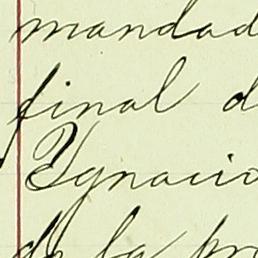 mandad
final d
Ygnacio
de la pr